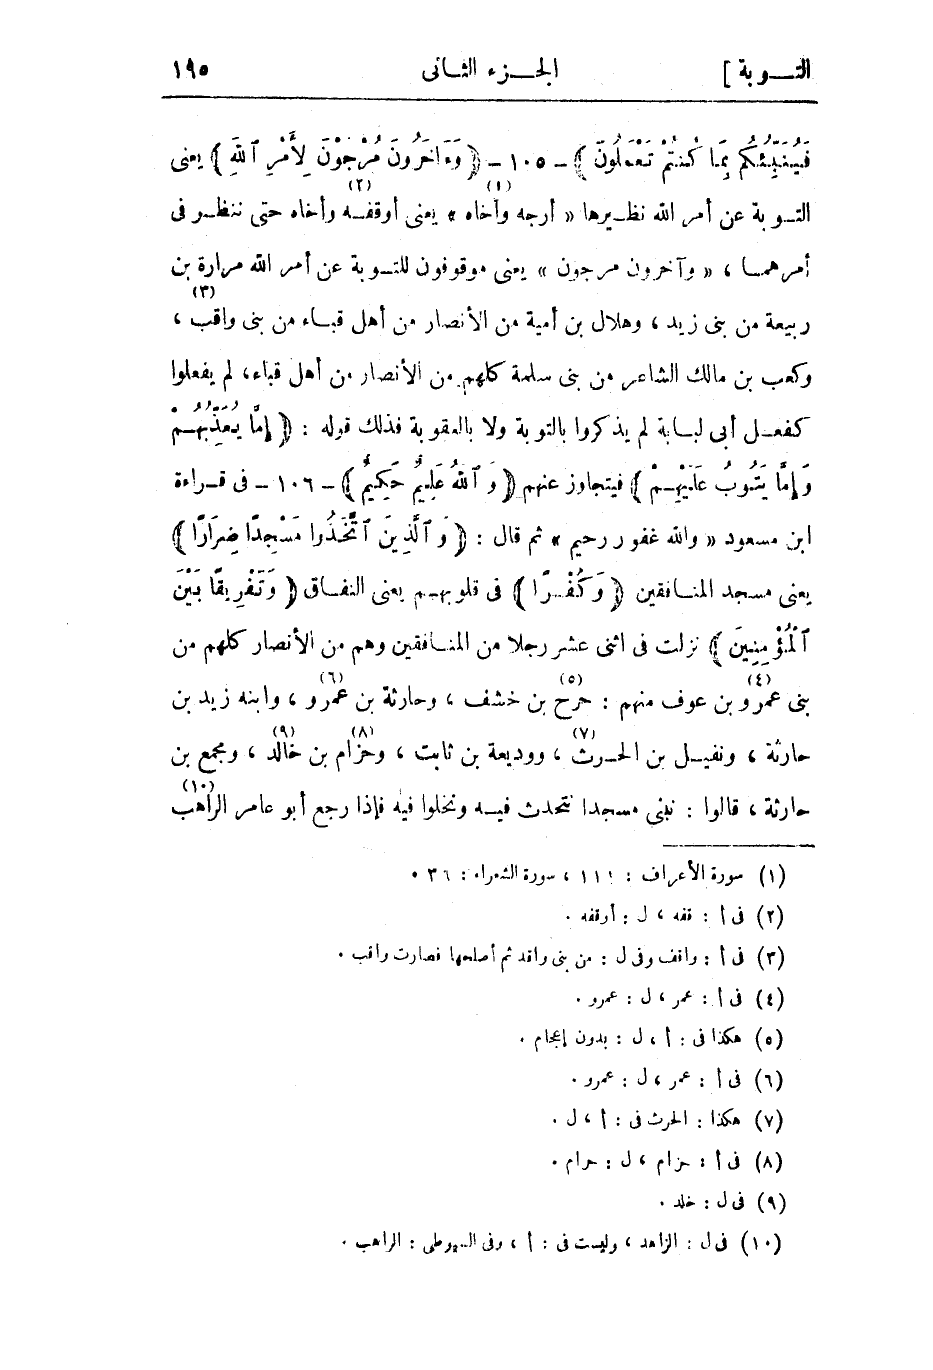 التـوبة ]
الجـزء الثانى
١٩٥
فَيُنَبِّئُكُم بِمَا كُنتُمْ تَعْمَلُونَ ﴾ – ١٠٥ – ﴿ وَءَاخَرُونَ مُرْجَوْنَ لِأَمْرِ ٱللَّهِ ﴾ يعنى
التـوبة عن أمر الله نظيرها « أرجه وأخاه (١) » يعنى أوقفه (٢) وأخاه حتى ننظـر فى
أمرهمـا ، « وآخرون مرجون » يعنى موقوفون للتـوبة عن أمر الله مرارة بن
ربيعة من بنى زيد ، وهلال بن أمية من الأنصار من أهل قبـاء من بنى واقب (٣) ،
وكعب بن مالك الشاعر من بنى سلمة كلهم من الأنصار من أهل قباء، لم يفعلوا
كفعـل أبى لبـابة لم يذكروا بالتوبة ولا بالعقوبة فذلك قوله : ﴿ إِمَّا يُعَذِّبُهُمْ
وَإِمَّا يَتُوبُ عَلَيْهِمْ ﴾ فيتجاوز عنهم ﴿ وَٱللَّهُ عَلِيمٌ حَكِيمٌ ﴾ – ١٠٦ – فى قـراءة
ابن مسعود « والله غفور رحيم » ثم قال : ﴿ وَٱلَّذِينَ ٱتَّخَذُوا مَسْجِدًا ضِرَارًا ﴾
يعنى مسجد المنـافقين ﴿ وَكُفْرًا ﴾ فى قلوبهـم يعنى النفـاق ﴿ وَتَفْرِيقًا بَيْنَ
ٱلْمُؤْمِنِينَ ﴾ نزلت فى اثنى عشر رجلا من المنـافقين وهم من الأنصار كلهم من
بنى عمرو (٤) بن عوف منهم : حرح (٥) بن خشف ، وحارثة بن عمرو (٦) ، وابنه زيد بن
حارثة ، ونفيـل بن الحـرث (٧) ، ووديعة بن ثابت ، وحزام (٨) بن خالد (٩) ، ومجمع بن
حارثة ، قالوا : نبنى مسجدا نتحدث فيـه ونخلوا فيه فإذا رجع أبو عامر الراهب (١٠)
(١) سورة الأعراف : ١١١ ، سورة الشعراء : ٣٦ .
(٢) فى أ : قفه ، ل : أوقفه .
(٣) فى أ : واقف وفى ل : من بنى واقد ثم أصلحها فصارت واقب .
(٤) فى أ : عمر ، ل : عمرو .
(٥) هكذا فى : أ ، ل : بدون إعجام .
(٦) فى أ : عمر ، ل : عمرو .
(٧) هكذا : الحرث فى : أ ، ل .
(٨) فى أ : حزام ، ل : حرام .
(٩) فى ل : خلد .
(١٠) فى ل : الزاهد ، وليست فى : أ ، وفى السيوطى : الراهب .